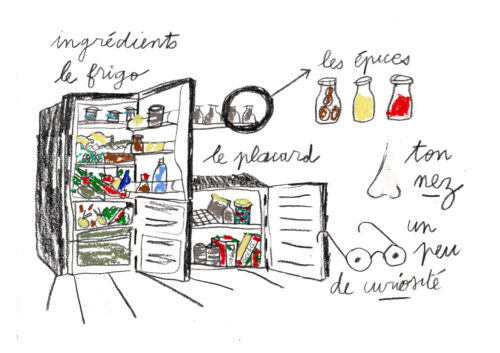 ingrédients
le frigo
les épices
le placard
ton
nez
un
peu
de curiosité